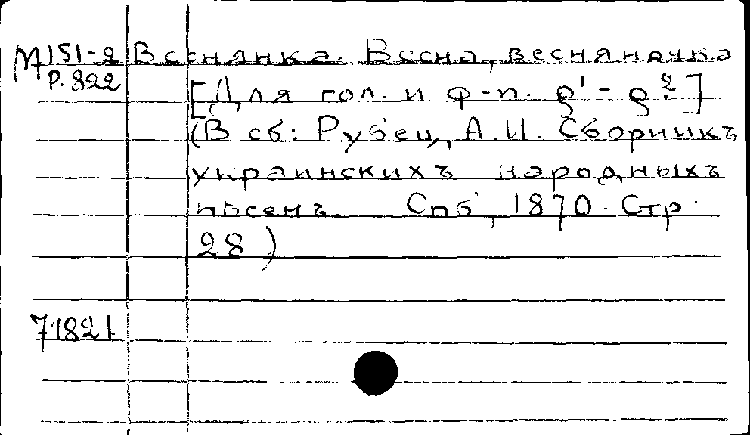 М 151-2 Веснянка. Весна, весняночка
Р.822
[Для гол. и ф-п. g¹ - g².]
(В сб: Рубец, А.И. Сборникъ
украинскихъ народныхъ
пѣсенъ. Спб, 1870. Стр.
28)
71821